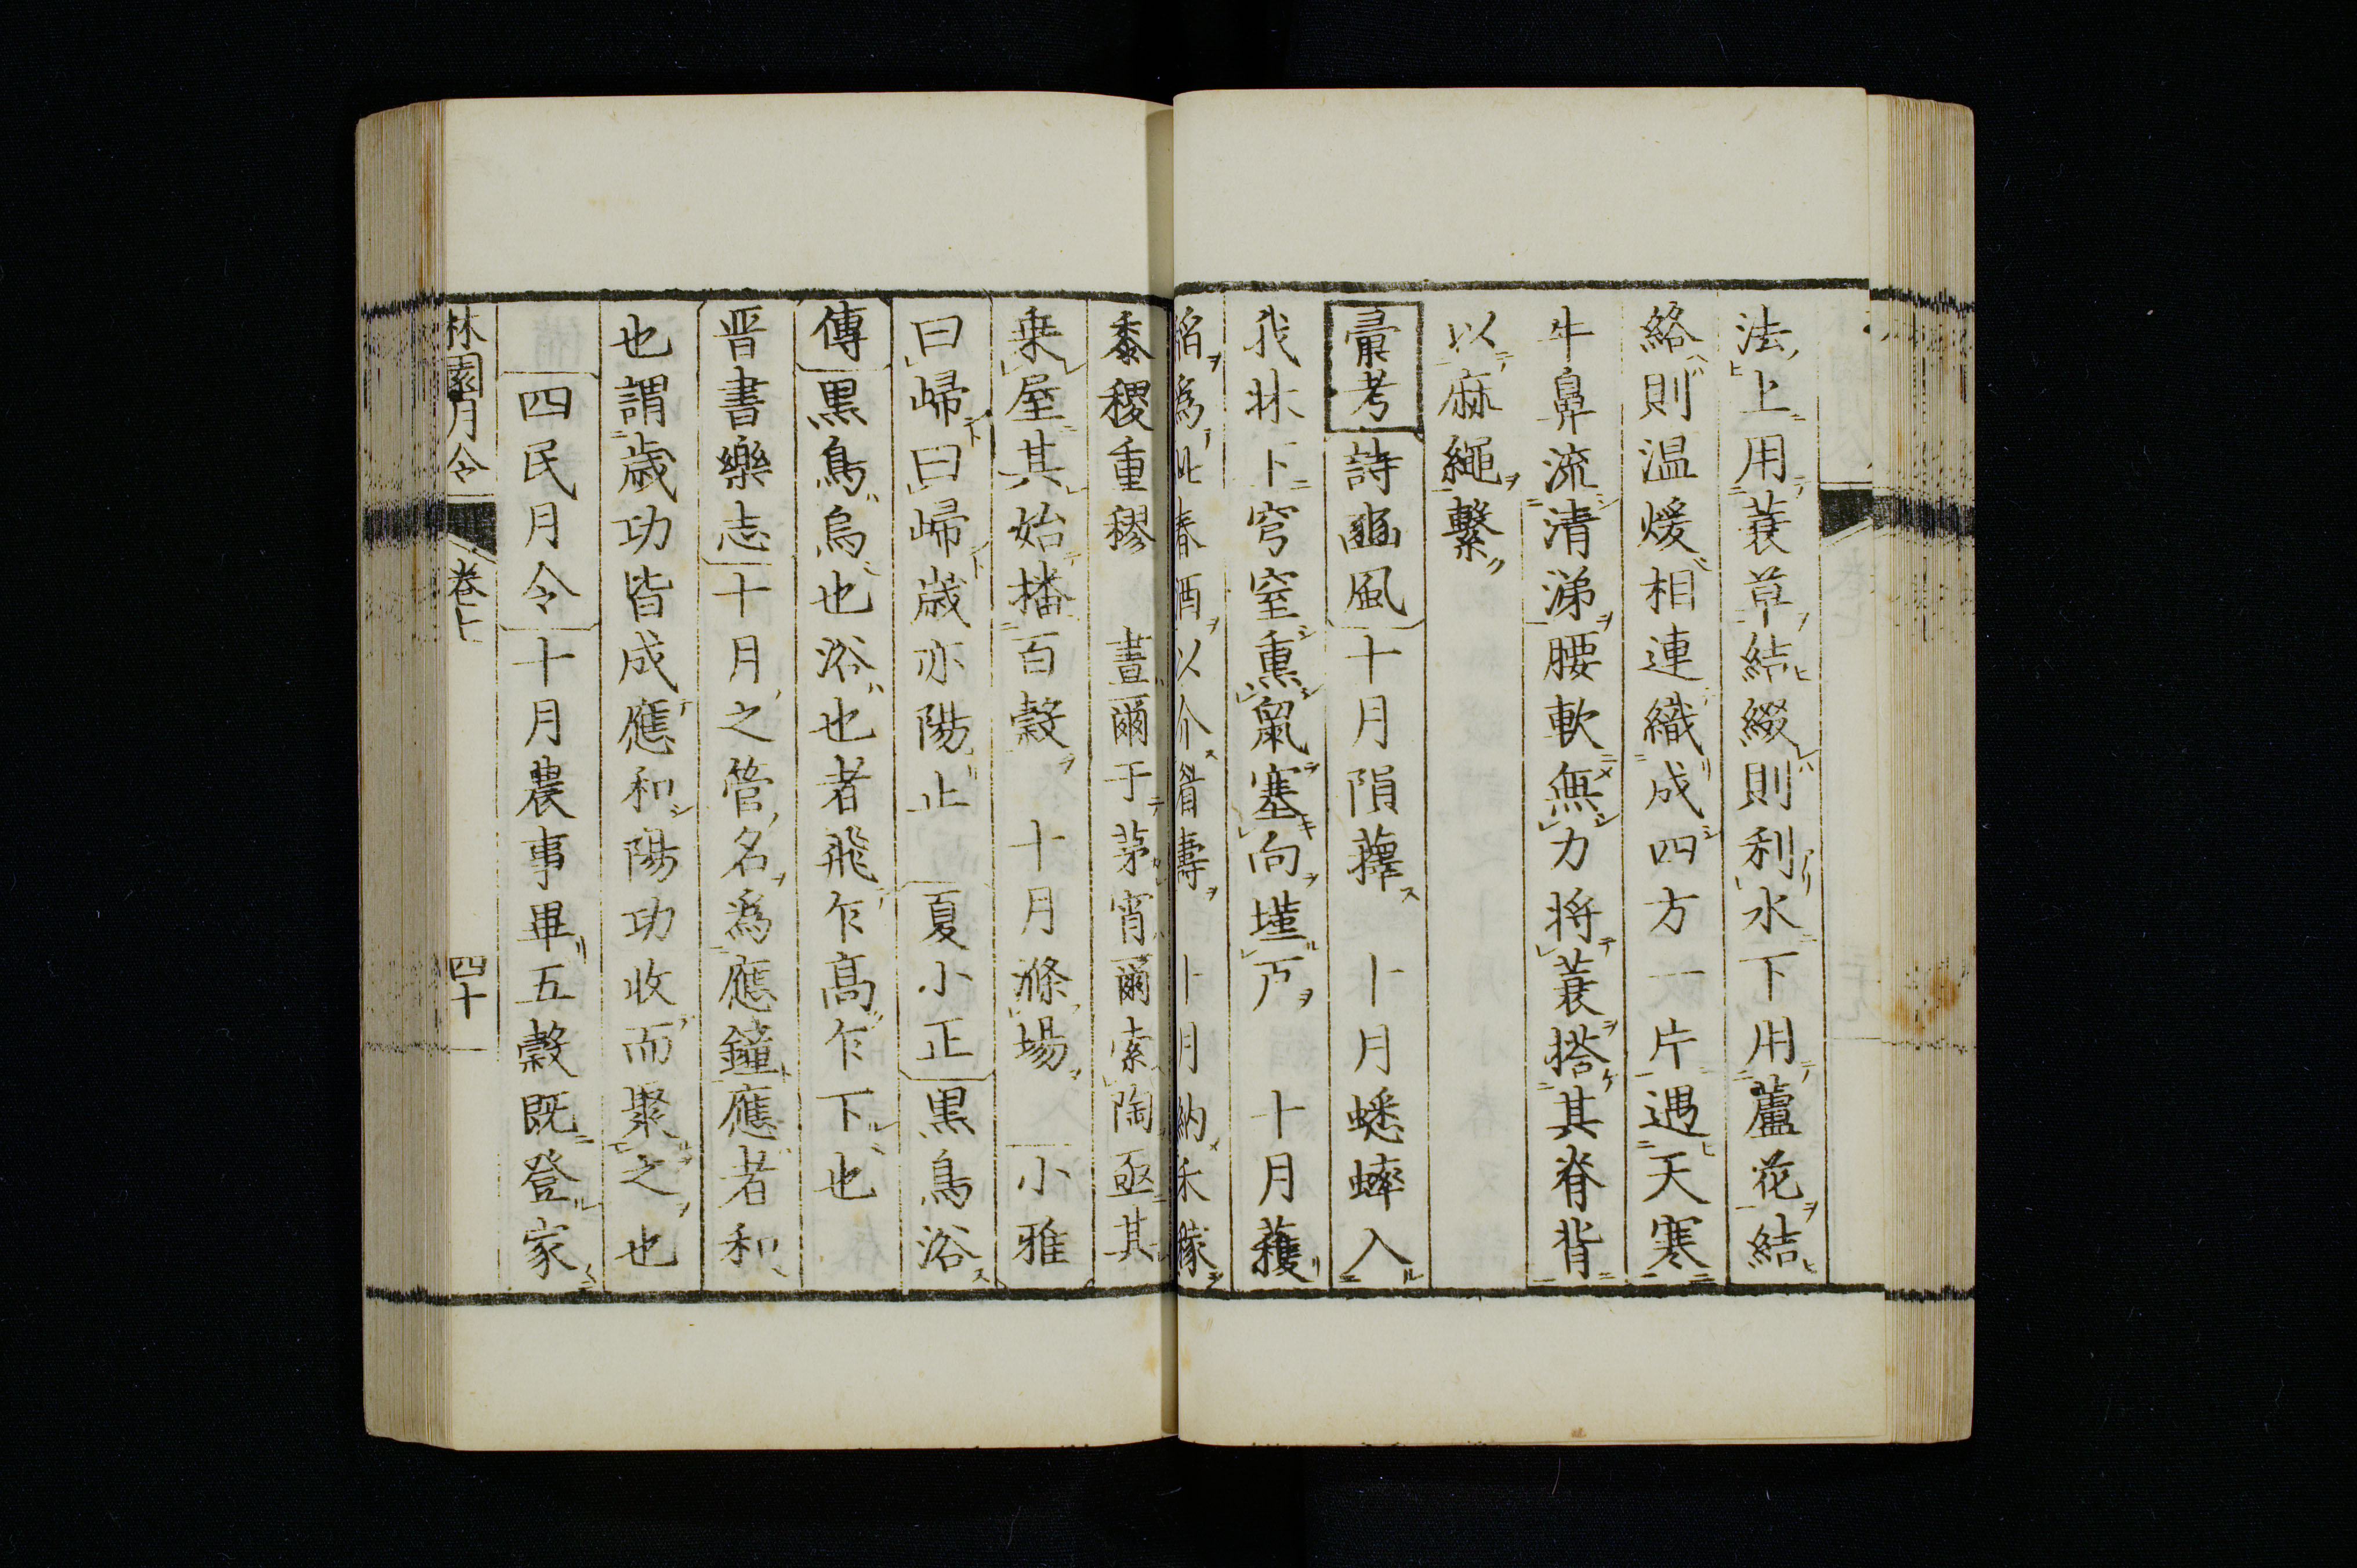 法上用蓑草結綴則利水下用蘆花結
絡則温煖相連織成四方一片遇天寒
牛鼻流清涕腰軟無力将蓑搭其脊背
以麻繩繫
彙考 詩豳風 十月隕蘀 十月蟋蟀入
我牀下穹窒熏鼠塞向墐戸 十月穫
稲為此春酒以介眉壽 十月納禾稼
黍稷重穋 晝爾于茅宵爾索陶亟其
乗屋其始播百穀 十月滌場 小雅
曰歸曰歸歳亦陽止 夏小正 黒鳥浴
傳 黒鳥烏也浴也也者飛乍高乍下也
晋書樂志 十月之管名為應鐘應者和
也謂歳功皆成應和陽功收而聚之也
四民月令 十月農事畢五穀既登家
林園月令 卷上 四十